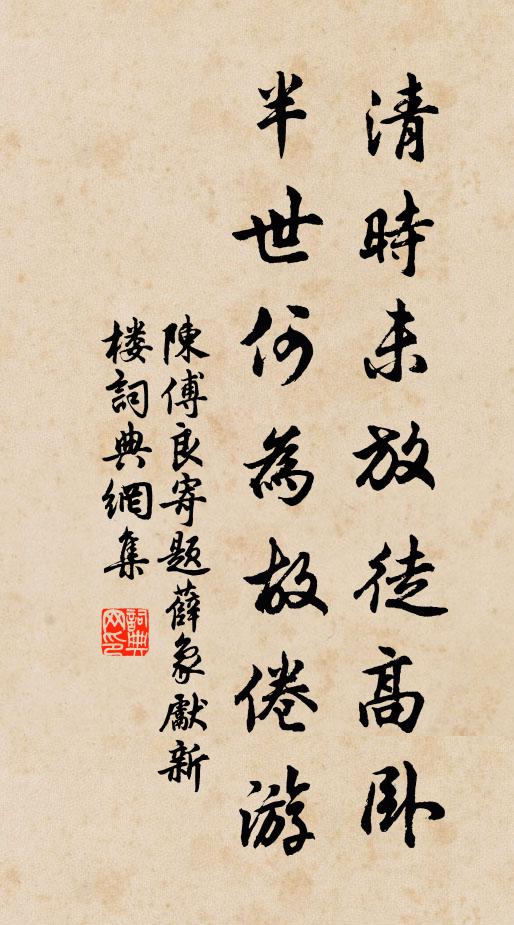 清時未放徒高卧
半世何為故倦游
陳傅良寄题薛象獻新
楼詞典網集
詞典網印